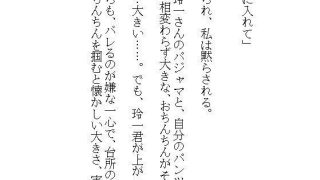 に入れて」
られ、私は黙らされる。
玲一さんのパジャマと、自分のパンツ
相変わらず大きな、おちんちんがそ
・大きい……。でも、玲一君が上が
らも、バレるのが嫌な一心で、台所の
ちんちんを掴むと懐かしい大きさ、